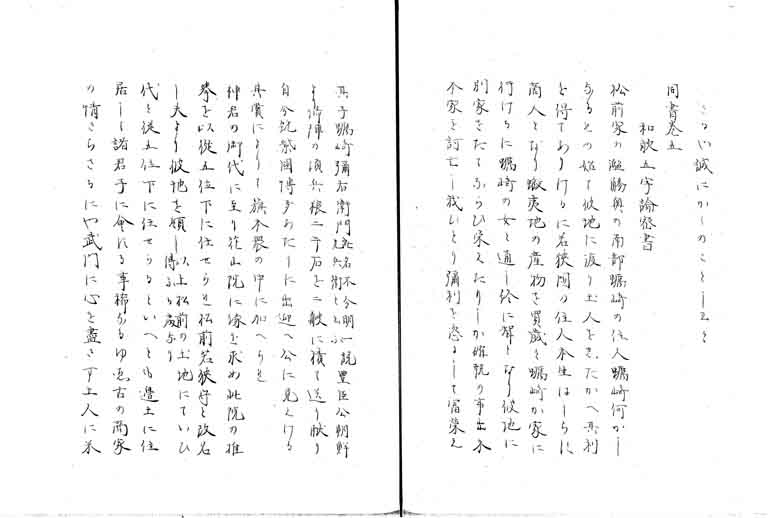 さるハ誠にかしのことしとそ
同書巻五
和歌五字論癸書
松前家の濫觴奥の南部蠣崎の住人蠣崎何かし
なるもの始て彼地に渡り土人をしたかへ其利
を得てありけるに若狭国の住人本生はしらに
商人となり蝦夷地の産物を買蔵て蠣崎か家に
行けるに蠣崎の女と通し終に聟となり彼地に
別家をたてならひ栄えたりしか確執の事出来
本家を討亡し我ひとり彌利を恣にして富栄え
其子蠣崎彌右衛門兵衛ともいふ一説豊臣公朝鮮
より御陣の頃兵粮二千石を二艘に積て送り献り
自分筑紫国博多わたしに出迎へ公に見えける
其賞によりて旗本衆の中に加へらる
神君の御代に至り花山院に縁を求め此院の推
挙を以従五位下に任せられ松前若狭守と改名
し夫より彼地を領し以上松前の土地にていひ
代々従五位下に任せらるといへとも邉土に住
居しし諸君子に会れる事稀なるゆゑ古の商家
の情さらさるにや武門に心を盡さす土人に米